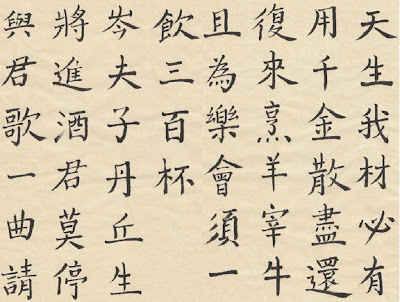 天生我材必有
用千金散盡還
復來烹羊宰牛
且為樂會須一
飲三百杯
岑夫子丹丘生
將進酒君莫停
與君歌一曲請